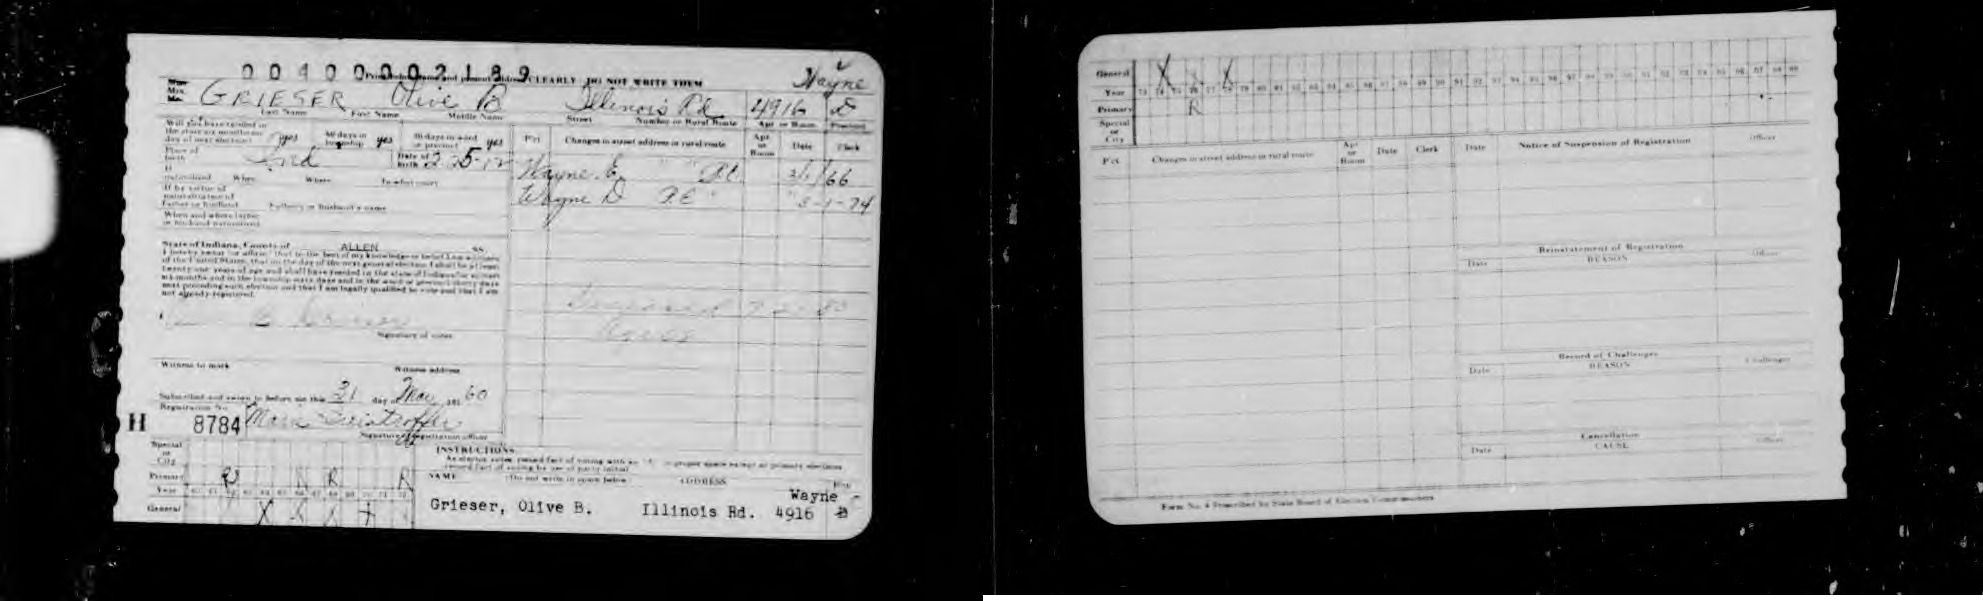 00400002189
CLEARLY DO NOT WRITE THEM
Wayne
Miss
Mrs.
Mr. GRIESER Olive B Illinois Rd 4916 D
Last Name First Name Middle Name Street Number or Rural Route Apt or Room Precinct
Will you have resided in
the state six months on
day of next election? yes 60 days in
township yes 30 days in ward
or precinct yes
Pct Changes in street address or rural route Apt
or
Room Date Clerk
Place of
birth Ind Date of
birth 2-25-12
Wayne E " " P.C. 2/1/66
If
naturalized When Where In what court
Wayne D P.E " 3-1-74
If by virtue of
naturalization of
Father or husband Father's or husband's name
When and where father
or husband naturalized
State of Indiana, County of ALLEN SS.
I hereby swear (or affirm) that to the best of my knowledge or belief I am a citizen
of the United States, that on the day of the next general election I shall be at least
twenty-one years of age and shall have resided in the state of Indiana for at least
six months and in the township sixty days and in the ward or precinct thirty days
next preceding such election and that I am legally qualified to vote and that I am
not already registered.
B Grieser
Signature of voter
Witness to mark Witness address
Subscribed and sworn to before me this 31 day of Mar 19 60
Registration No.
H 8784
Signature of registration officer
Special
or
City
Primary R R R
Year 60 61 62 63 64 65 66 67 68 69 70 71 72
General X X X X
INSTRUCTIONS
As elector votes, record fact of voting with an "X" in proper space except at primary elections
record fact of voting by use of party initial
NAME (Do not write in space below) ADDRESS Pct
Wayne
Grieser, Olive B. Illinois Rd. 4916 D
General X X
Year 73 74 75 76 77 78 79 80 81 82 83 84 85 86 87 88 89 90 91 92 93 94 95 96 97 98 99
Primary R
Special
or
City
Pct Changes in street address or rural route Apt
or
Room Date Clerk Date Notice of Suspension of Registration Officer
Reinstatement of Registration
Date REASON Officer
Record of Challenges
Date REASON Challenger
Cancellation
Date CAUSE Officer
Form No. 4 Prescribed by State Board of Election Commissioners